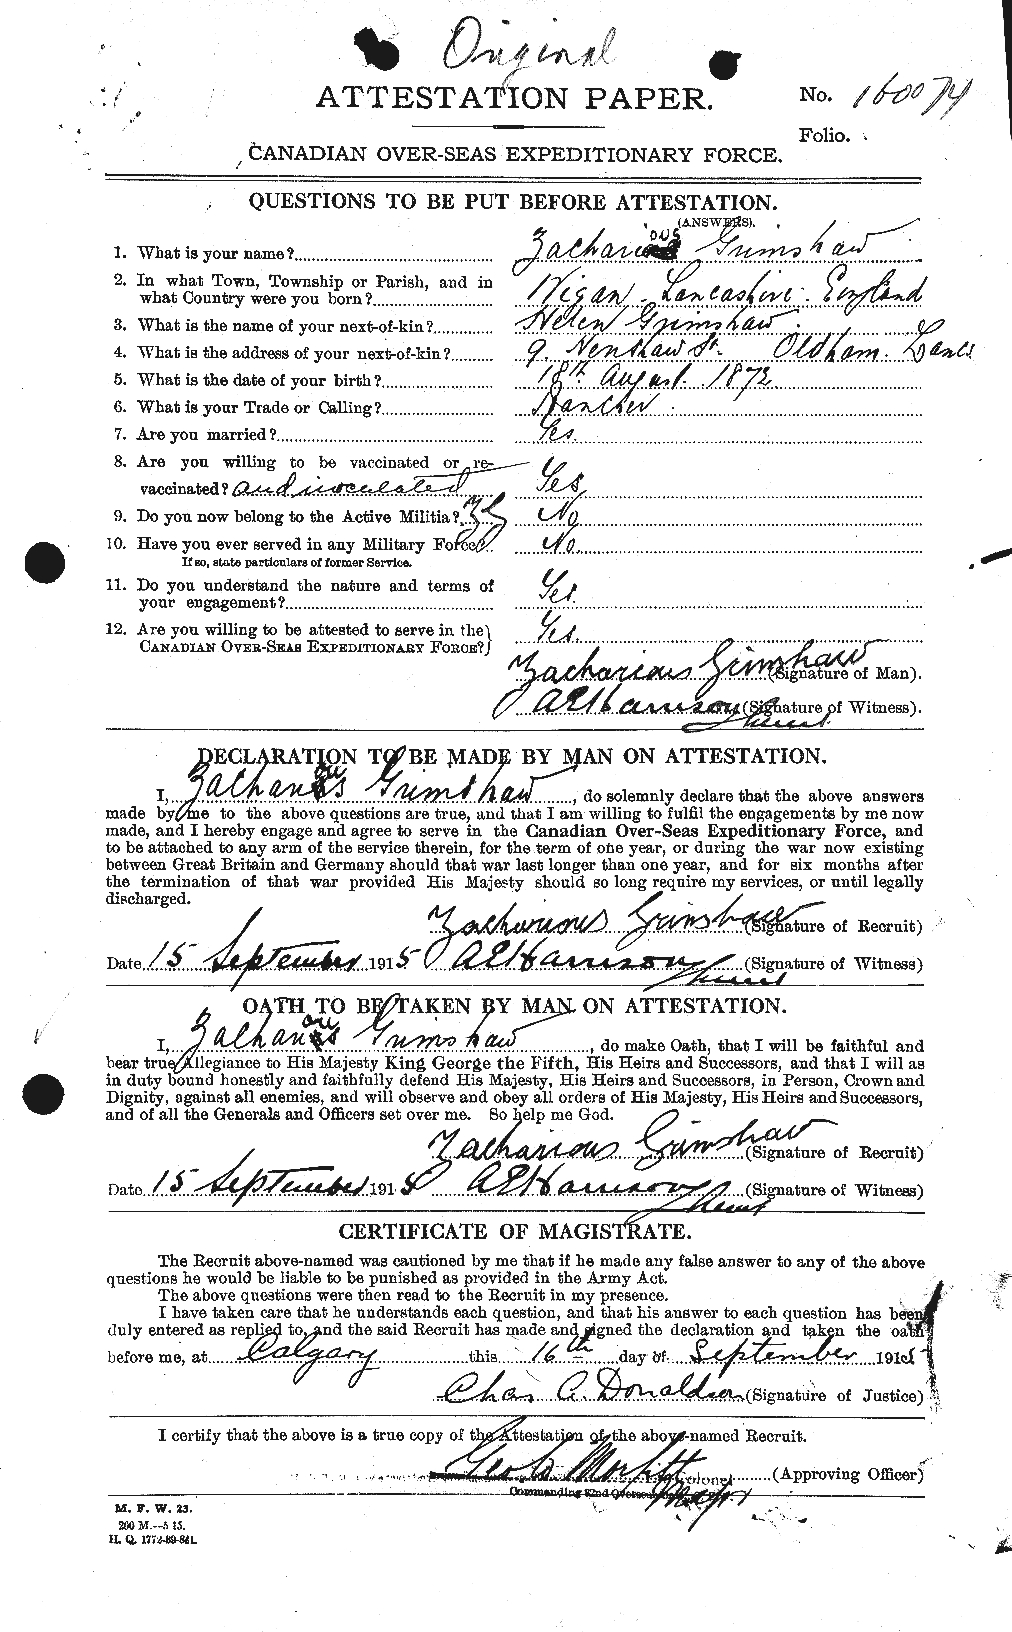 Original
ATTESTATION PAPER.
No. 160074
Folio.
CANADIAN OVER-SEAS EXPEDITIONARY FORCE.
QUESTIONS TO BE PUT BEFORE ATTESTATION.
(ANSWERS).
1. What is your name? Zacharious Grimshaw
2. In what Town, Township or Parish, and in
what Country were you born? Wigan. Lancashire. England
3. What is the name of your next-of-kin? Helen Grimshaw.
4. What is the address of your next-of-kin? 9. Henshaw St. Oldham. Lancs
5. What is the date of your birth? 18th August. 1872
6. What is your Trade or Calling? Rancher.
7. Are you married? Yes.
8. Are you willing to be vaccinated or re-
vaccinated? and inoculated Yes
9. Do you now belong to the Active Militia? ZG No
10. Have you ever served in any Military Force? No.
If so, state particulars of former Service.
11. Do you understand the nature and terms of
your engagement? Yes.
12. Are you willing to be attested to serve in the
CANADIAN OVER-SEAS EXPEDITIONARY FORCE? Yes.
Zacharious Grimshaw (Signature of Man).
A E Harrison (Signature of Witness).
DECLARATION TO BE MADE BY MAN ON ATTESTATION.
I, Zacharious Grimshaw, do solemnly declare that the above answers
made by me to the above questions are true, and that I am willing to fulfil the engagements by me now
made, and I hereby engage and agree to serve in the Canadian Over-Seas Expeditionary Force, and
to be attached to any arm of the service therein, for the term of one year, or during the war now existing
between Great Britain and Germany should that war last longer than one year, and for six months after
the termination of that war provided His Majesty should so long require my services, or until legally
discharged.
Zacharious Grimshaw (Signature of Recruit)
Date 15 September 1915 A E Harrison (Signature of Witness)
OATH TO BE TAKEN BY MAN ON ATTESTATION.
I, Zacharious Grimshaw, do make Oath, that I will be faithful and
bear true Allegiance to His Majesty King George the Fifth, His Heirs and Successors, and that I will as
in duty bound honestly and faithfully defend His Majesty, His Heirs and Successors, in Person, Crown and
Dignity, against all enemies, and will observe and obey all orders of His Majesty, His Heirs and Successors,
and of all the Generals and Officers set over me. So help me God.
Zacharious Grimshaw (Signature of Recruit)
Date 15 September 1915 A E Harrison (Signature of Witness)
CERTIFICATE OF MAGISTRATE.
The Recruit above-named was cautioned by me that if he made any false answer to any of the above
questions he would be liable to be punished as provided in the Army Act.
The above questions were then read to the Recruit in my presence.
I have taken care that he understands each question, and that his answer to each question has been
duly entered as replied to, and the said Recruit has made and signed the declaration and taken the oath
before me, at Calgary this 16th day of September 1915
Chas A. Donaldson (Signature of Justice)
I certify that the above is a true copy of the Attestation of the above-named Recruit.
Geo Colonel (Approving Officer)
Commanding Major
M. F. W. 23.
200 M.—5 15.
H. Q. 1772-39-841.